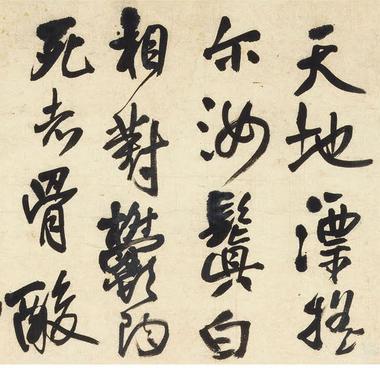 天地漂搖
尔汝鬒白
相對鬱陶
死者骨酸